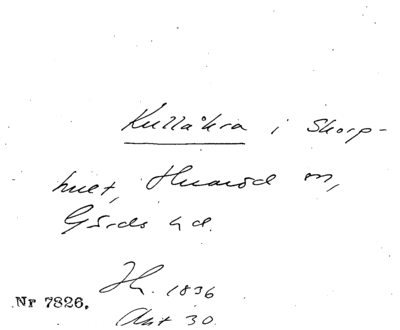 Kullåkra i Skarp-
hult, Huaröd sn,
Gärds hd.
Jh. 1836
Nr 7826.
Akt 30